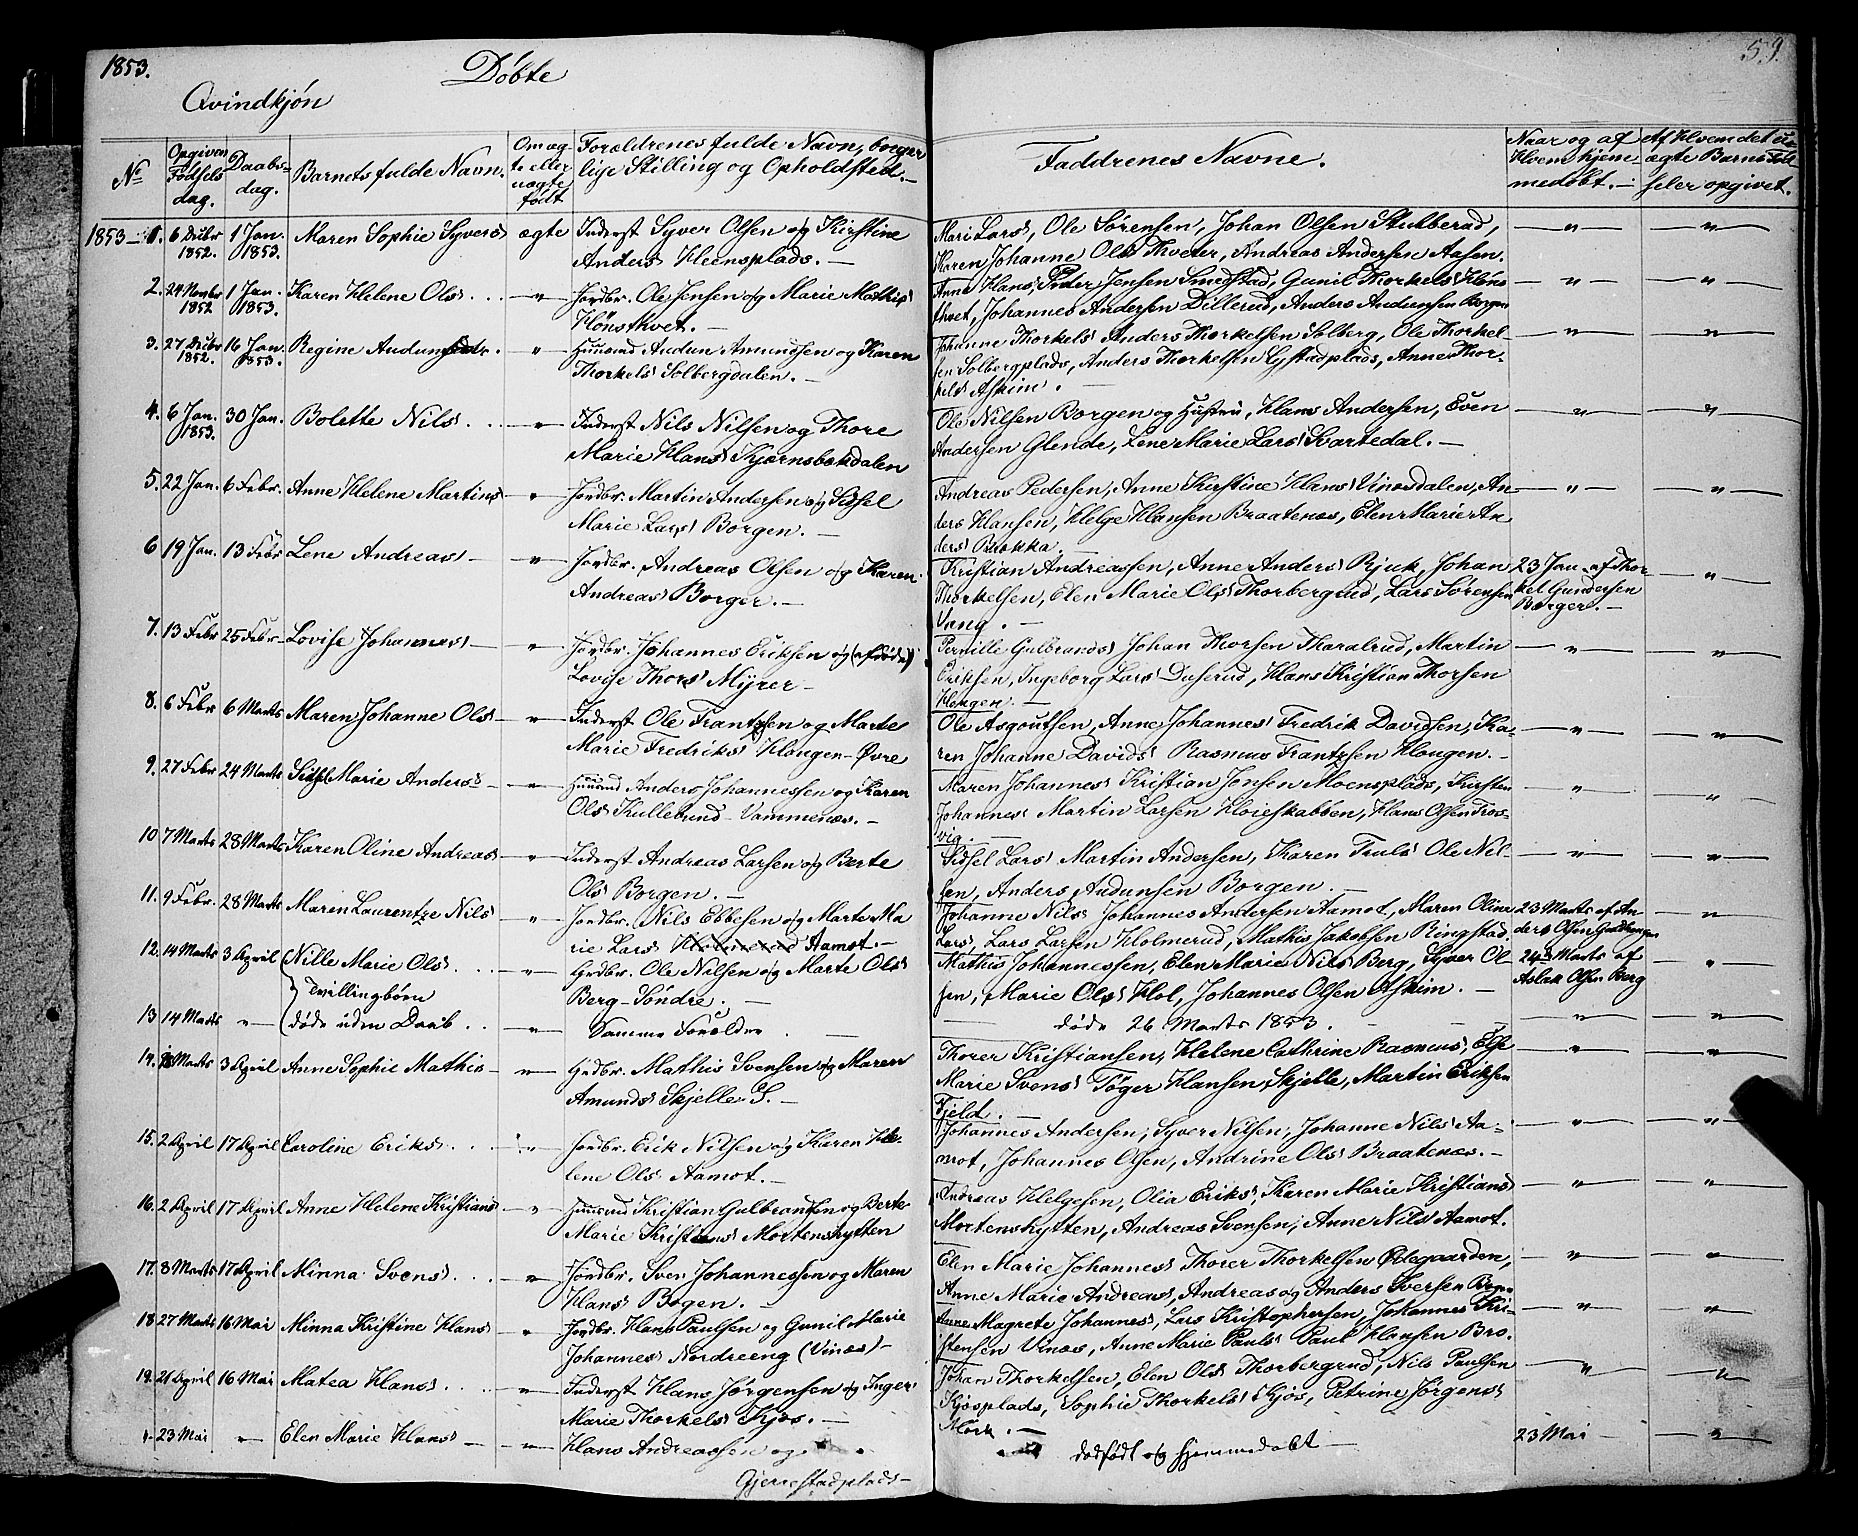 1853.
Döbte
59.
Qvindkjön
No
Opgiven Födsels dag.
Daabs-dag.
Barnets fulde Navn.
Om ægte eller uægte født
Forældrenes fulde Navn, borgerlige Stilling og Opholdsted.
Faddrenes Navne.
Naar og af Hvem hjemmedøbt.
Af Hvem det uægte Barns Fødseler opgivet.
1853 1. 6 Decbr 1852. 1 Jan. 1853. Maren Sophie Syvers ægte Inderst Syver Olsen og Kirstine
Anders Heensplads.
Mari Lars, Ole Sørensen, Johan Olsen Stubberud,
Karen Johanne Ols Thveter, Andreas Andersen Aasen.
2. 24 Novbr 1852 1 Jan. 1853. Karen Helene Ols Jordbr. Ole Jensen og Marie Mathis
Hönsthvet.
Anne Hans, Peder Jensen Smedstad, Gunil Thorkels Höns-
thvet, Johannes Andersen Dillerud, Anders Andersen Borgen
3. 27 Decbr 1852. 16 Jan. 1853. Regine Audunsdtr. Huusmd Audun Amundsen og Karen
Thorkels Solbergdalen.
Johanne Thorkels Anders Thorkelsen Solberg, Ole Thorkel-
sen Solbergplads, Anders Thorkelsen Gystadplads, Anne Thor-
kels Askim.
4. 6 Jan. 1853. 30 Jan. Bolette Nils Inderst Nils Nilsen og Thore
Marie Hans Kjærnsbækdalen
Ole Nilsen Borgen og Hustru, Hans Andersen, Even
Andersen Glende, Lene Marie Lars Svartedal.
5. 22 Jan. 6 Febr. Anne Helene Martins Jordbr. Martin Andersen og Sidsel
Marie Lars Borgen.
Andreas Pedersen, Anne Kirstine Hans Vinæsdalen, An-
ders Hansen, Helge Hansen Braatenæs, Elen Marie An-
ders Brækka
6 19 Jan. 13 Febr Lene Andreas Jordbr. Andreas Olsen og Karen
Andreas Borger.
Kristian Andreassen, Anne Anders Rjuk, Johan 23 Jan af Thor-
Thorkelsen, Elen Marie Ols Thorbergrud, Lars Sörensen kel Gundersen
Vang. Borger.
7. 13 Febr 25 Febr Lovise Johannes Jordbr. Johannes Eriksen og (afdøde)
Lovise Thors Myrer
Pernille Gulbrands Johan Thorsen Tharalrud, Martin
Eriksen, Ingeborg Lars Duserud, Hans Kristian Thorsen
Hougen.
8. 6 Febr 6 Marts Maren Johanne Ols Inderst Ole Frantzsen og Marte
Marie Fredriks Hougen-Øvre
Ole Asgoutsen, Anne Johannes Fredrik Davidsen, Ka-
ren Johanne Davids Rasmus Frantzsen Hougen.
9. 27 Febr 24 Marts Sidsel Marie Anders Huusmd Anders Johannessen og Karen
Ols Kullebund Vammenæs.
Maren Johannes Kristian Jensen Moensplads, Kirsten
Johannes Martin Larsen Hoieskabben, Hans Olsen Tros-
vig.
10 7 Marts 28 Marts Karen Oline Andreas Inderst Andreas Larsen og Berte
Ols Borgen.
Sidsel Lars Martin Andersen, Karen Truls Ole Nil-
sen, Anders Audunsen Borgen.
11. 9 Febr. 28 Marts Maren Laurentze Nils Jordbr. Nils Ebbesen og Marte Ma
rie Lars Holmerud Aamot.
Johanne Nils Johannes Andersen Aamot, Maren Oline 23 Marts af An-
Lars, Lars Larsen Holmerud, Mathis Jakobsen Ringstad. ders Olsen
12. 14 Marts 3 April Nille Marie Ols Grdbr. Ole Nilsen og Marte Ols
Tvillingbörn Berg-Söndre.
Mathis Johannessen, Elen Marie Nils Berg, Syver Ol- 24 Marts af
sen, Marie Ols Hol, Johannes Olsen Askim. Aslak Olsen Berg
13 14 Marts döde uden Daab Samme Forældre döde 26 Marts 1853.
14. 18 Marts 3 April Anne Sophie Mathis Grdbr. Mathis Svensen og Maren
Amunds Skjelle S.
Thorer Kristiansen, Helene Cathrine Rasmus, Else
Marie Svens Töger Hansen Skjelle, Martin Eriksen
Fjeld.
15. 2 April 17 April Caroline Eriks Jordbr. Erik Nilsen og Karen He-
lene Ols Aamot.
Johannes Andersen, Syver Nilsen, Johanne Nils Aa-
mot, Johannes Olsen, Andrine Ols Braatenæs.
16. 2 April 17 April Anne Helene Kristians Huusmd Kristian Gulbrandsen og Berte
Marie Kristians Mortenshytten
Andreas Helgesen, Olia Eriks, Karen Marie Kristians
Mortenshytten, Andreas Svensen, Anne Nils Aamot.
17. 3 Marts 17 April Minna Svens Jordbr. Sven Johannessen og Maren
Hans Bogen.
Elen Marie Johannes Thorer Thorkelsen Ödegaarden,
Anne Marie Andreas, Andreas og Anders Iversen Bogen
18 27 Marts 16 Mai Minna Kristine Hans Jordbr. Hans Paulsen og Gunil Marie
Johannes Nordreeng (Vinæs)
Anne Magrete Johannes, Lars Kristophersen, Johannes Kri-
stensen Vinæs, Anne Marie Pauls Paul Hansen Bro.
19. 21 April 16 Mai Matea Hans Inderst Hans Jørgensen og Inger
Marie Thorkels Kjös.
Johan Thorkelsen, Elen Ols Thorbergrud, Nils Paulsen
Kjösplads, Sophie Thorkels Kjös, Petrine Jørgens
Mörk.
23 Mai Elen Marie Hans Hans Andreassen og
Gjerrestadplads
dødfødt og hjemmedøbt 23 Mai